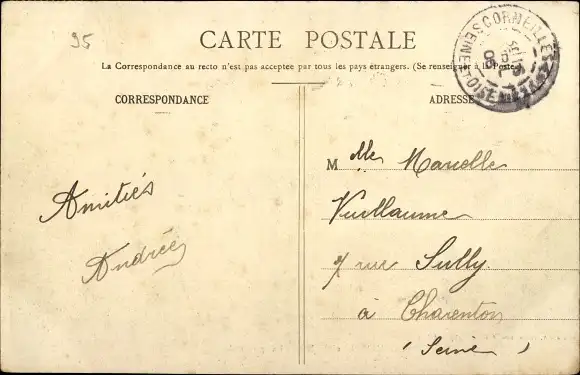 95
CARTE POSTALE
La Correspondance au recto n'est pas acceptée par tous les pays étrangers. (Se renseigner à la Poste)
CORRESPONDANCE
ADRESSE
CORMEILLES
SEINE ET OISE
Mlle Marcelle
Vuillaume
7 rue Sully
à Charenton
(Seine)
Amitiés
Andrée